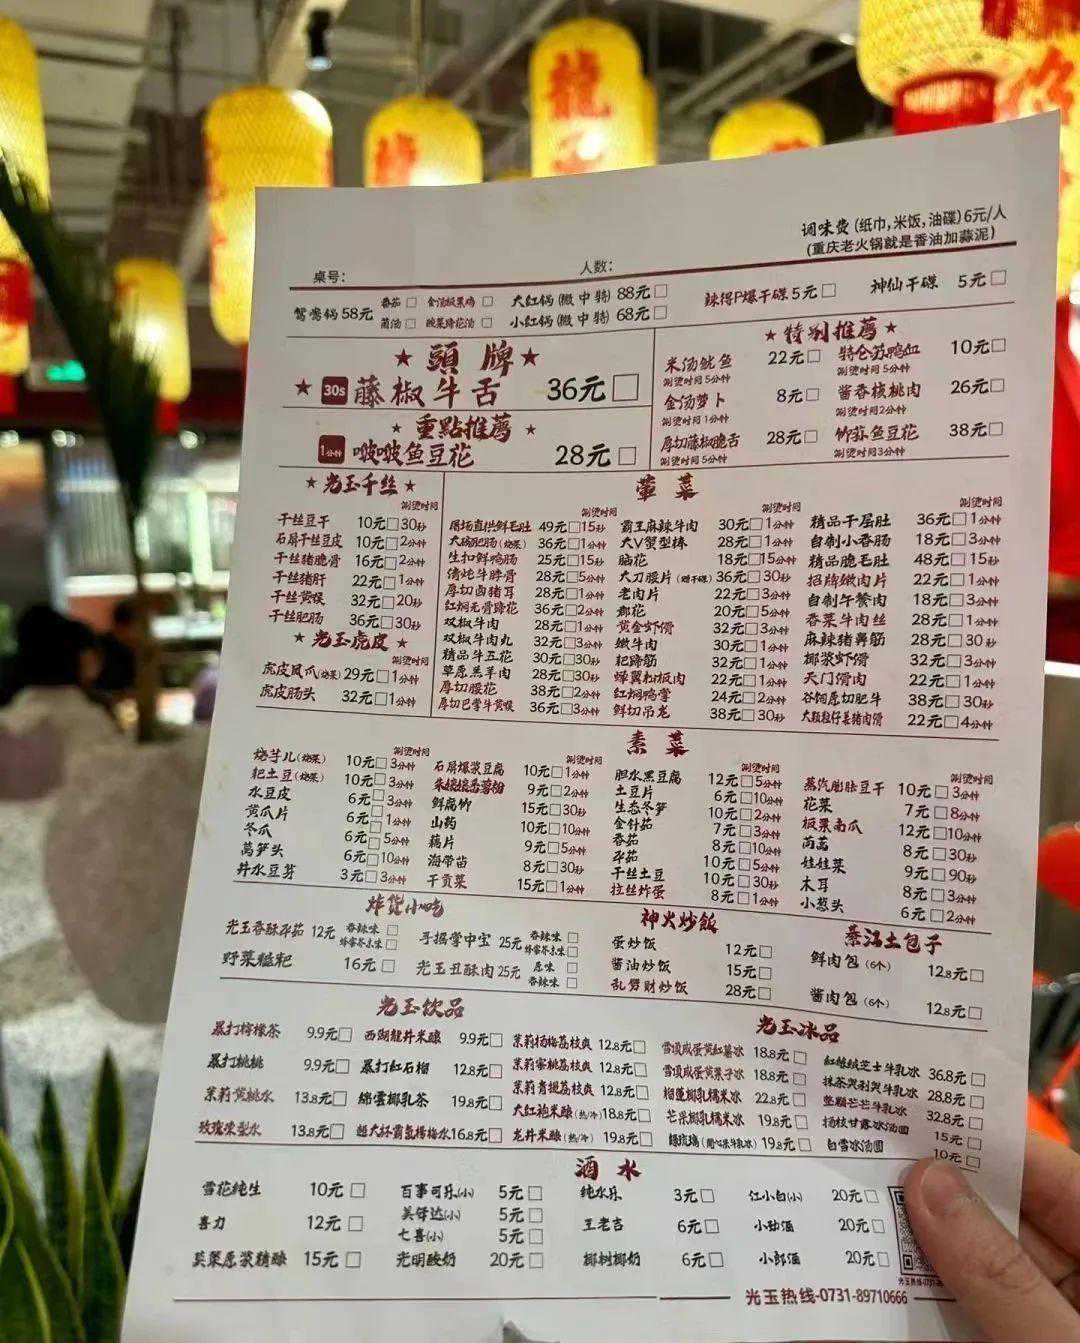 龍
调味费(纸巾,米饭,油碟)6元/人
(重庆老火锅就是香油加蒜泥)
桌号: 人数:
鸳鸯锅58元 番茄□ 金汤板栗鸡□ 菌汤□ 酸菜蹄花汤□
大红锅(微 中 特) 88元□
小红锅(微 中 特) 68元□
辣得P爆干碟5元□ 神仙干碟 5元□
★頭牌★
★ 30s 藤椒牛舌 36元□
★重點推薦★
1分钟 啵啵鱼豆花 28元□
★特别推薦★
米汤鱿鱼 22元□
涮烫时间5分钟
特仑苏鸭血 10元□
涮烫时间5分钟
金汤萝卜 8元□
涮烫时间1分钟
酱香核桃肉 26元□
涮烫时间2分钟
厚切藤椒脆舌 28元□
涮烫时间5分钟
竹荪鱼豆花 38元□
涮烫时间3分钟
★光玉千丝★
涮烫时间
千丝豆干 10元□30秒
石屏千丝豆皮 10元□2分钟
千丝猪脆骨 16元□2分钟
千丝猪肝 22元□1分钟
千丝黄喉 32元□20秒
千丝肥肠 36元□30秒
★光玉虎皮★
涮烫时间
虎皮凤爪(烧菜) 29元□1分钟
虎皮肠头 32元□1分钟
葷菜
涮烫时间
屠场直供鲜毛肚 49元□15秒
大碗肥肠(烧菜) 36元□1分钟
生扣鲜鸭肠 25元□15秒
清炖牛脖骨 28元□5分钟
厚切卤猪耳 28元□1分钟
红焖无骨蹄花 36元□2分钟
双椒牛肉 28元□1分钟
双椒牛肉丸 32元□3分钟
精品牛五花 30元□30秒
草原羔羊肉 28元□30秒
厚切腰花 38元□2分钟
厚切巴掌牛黄喉 36元□3分钟
涮烫时间
霸王麻辣牛肉 30元□1分钟
大V蟹型棒 28元□1分钟
脑花 18元□15分钟
大刀腰片(赠干碟) 36元□30秒
老肉片 22元□3分钟
郡花 20元□5分钟
黄金虾滑 32元□3分钟
嫩牛肉 30元□1分钟
耙蹄筋 32元□1分钟
蝉翼老板肉 22元□1分钟
红焖鸭掌 24元□2分钟
鲜切吊龙 38元□30秒
涮烫时间
精品千层肚 36元□1分钟
自制小香肠 18元□3分钟
精品脆毛肚 48元□15秒
招牌嫩肉片 22元□1分钟
自制午餐肉 18元□3分钟
香菜牛肉丝 28元□1分钟
麻辣猪鼻筋 28元□30秒
椰浆虾滑 32元□3分钟
天门滑肉 22元□1分钟
谷饲厚切肥牛 38元□30秒
大颗粒仔姜猪肉滑 22元□4分钟
素菜
涮烫时间
烧芋儿(烧菜) 10元□3分钟
耙土豆(烧菜) 10元□3分钟
水豆皮 6元□3分钟
黄瓜片 6元□1分钟
冬瓜 6元□5分钟
莴笋头 6元□10分钟
井水豆芽 3元□3分钟
涮烫时间
石屏爆浆豆腐 10元□1分钟
朱婆婆苕薯粉 9元□2分钟
鲜腐竹 15元□30秒
山药 10元□10分钟
藕片 9元□5分钟
海带苗 8元□30秒
干贡菜 15元□1分钟
涮烫时间
胆水黑豆腐 12元□5分钟
土豆片 6元□10分钟
生态冬笋 10元□2分钟
金针菇 7元□3分钟
香菇 8元□10分钟
平菇 10元□5分钟
千丝土豆 10元□30秒
拉丝炸蛋 8元□1分钟
涮烫时间
蒸汽膨胀豆干 10元□3分钟
花菜 7元□8分钟
板栗南瓜 12元□10分钟
茼蒿 8元□30秒
娃娃菜 9元□90秒
木耳 8元□3分钟
小葱头 6元□2分钟
炸货小吃
光玉香酥平菇 12元 香辣味□ 蜂蜜芥末味□
手撕掌中宝 25元 香辣味□ 蜂蜜芥末味□
野菜糍粑 16元□
光玉丑酥肉25元 原味□ 香辣味□
神火炒飯
蛋炒饭 12元□
酱油炒饭 15元□
乱劈财炒饭 28元□
綦江土包子
鲜肉包(6个) 12.8元□
酱肉包(6个) 12.8元□
光玉饮品
暴打柠檬茶 9.9元□
暴打桃桃 9.9元□
茉莉黄桃水 13.8元□
玫瑰梨型水 13.8元□
西湖龍井米酿 9.9元□
暴打红石榴 12.8元□
綿雲椰乳茶 19.8元□
超大杯霸氣楊梅水16.8元□
茉莉杨梅荔枝爽 12.8元□
茉莉蜜桃荔枝爽 12.8元□
茉莉青提荔枝爽 12.8元□
大红袍米酿(热/冷)18.8元□
龙井米酿(热/冷) 19.8元□
光玉冰品
雪顶咸蛋黄红薯冰 18.8元□
雪顶咸蛋黄栗子冰 18.8元□
榴莲椰乳糯米冰 22.8元□
芒果椰乳糯米冰 19.8元□
绿琉璃(开心果牛乳冰) 19.8元□
红丝绒芝士牛乳冰 36.8元□
抹茶哭利哭牛乳冰 28.8元□
整颗芒芒牛乳冰 32.8元□
杨枝甘露冰汤圆 15元□
白雪冰汤圆 10元□
酒水
雪花纯生 10元□
喜力 12元□
芙蓉原浆精酿 15元□
百事可乐(小) 5元□
美年达(小) 5元□
七喜(小) 5元□
光明酸奶 20元□
纯水乐 3元□
王老吉 6元□
椰树椰奶 6元□
江小白(小) 20元□
小劲酒 20元□
小郎酒 20元□
光玉热线-0731-89710666